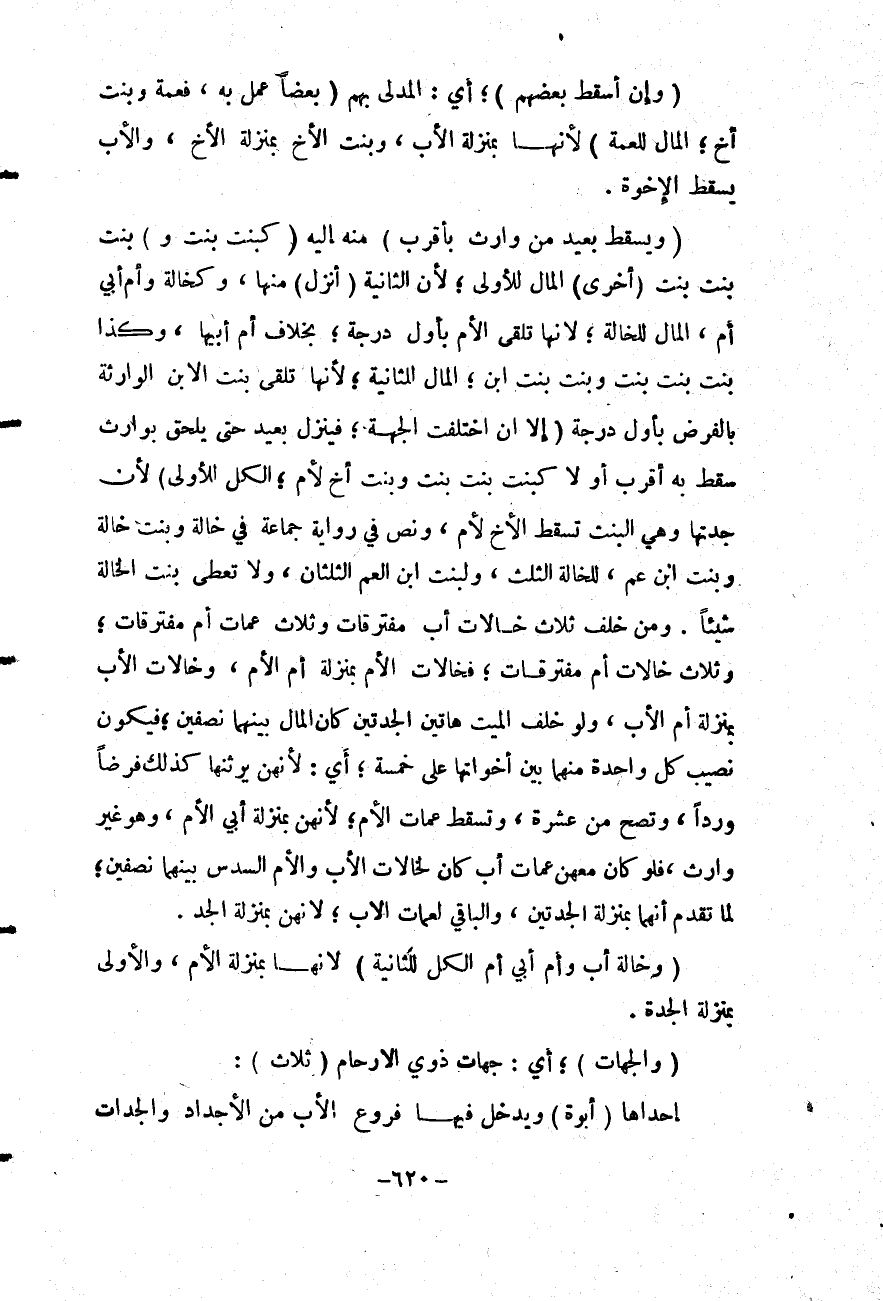 ( وإن أسقط بعضهم ) ؛ أي : المدلى بهم ( بعضاً عمل به ، فعمة وبنت
أخ ؛ المال للعمة ) لأنهـــا بمنزلة الأب ، وبنت الأخ بمنزلة الأخ ، والأب
يسقط الإخوة .
( ويسقط بعيد من وارث بأقرب ) منه اليه ( كبنت بنت و ) بنت
بنت بنت (أخرى) المال للأولى ؛ لأن الثانية ( أنزل) منها ، وكخالة وأم أبي
أم ، المال للخالة ؛ لانها تلقى الأم بأول درجة ؛ بخلاف أم أبيها ، وكذا
بنت بنت بنت وبنت بنت ابن ؛ المال للثانية ؛ لأنها تلقى بنت الابن الوارثة
بالفرض بأول درجة ( إلا ان اختلفت الجهة ؛ فينزل بعيد حتى يلحق بوارث
سقط به أقرب أو لا كبنت بنت بنت وبنت أخ لأم ؛ الكل للأولى) لأن
جدتها وهي البنت تسقط الأخ لأم ، ونص في رواية جماعة في خالة وبنت خالة
وبنت ابن عم ، للخالة الثلث ، ولبنت ابن العم الثلثان ، ولا تعطى بنت الخالة
شيئاً . ومن خلف ثلاث خـالات أب مفترقات وثلاث عمات أم مفترقات ؛
وثلاث خالات أم مفترقـات ؛ فخالات الأم بمنزلة أم الأم ، وخالات الأب
بمنزلة أم الأب ، ولو خلف الميت هاتين الجدتين كان المال بينهما نصفين ؛ فيكون
نصيب كل واحدة منهما بين أخواتها على خمسة ؛ أي : لأنهن يرثنها كذلك فرضاً
ورداً ، وتصح من عشرة ، وتسقط عمات الأم؛ لأنهن بمنزلة أبي الأم ، وهو غير
وارث ، فلو كان معهن عمات أب كان لخالات الأب والأم السدس بينهما نصفين ؛
لما تقدم أنهما بمنزلة الجدتين ، والباقي لعمات الاب ؛ لانهن بمنزلة الجد .
( وخالة أب وأم أبي أم الكل للثانية ) لانهـــا بمنزلة الأم ، والأولى
بمنزلة الجدة .
( والجهات ) ؛ أي : جهات ذوي الارحام ( ثلاث ) :
احداها ( أبوة ) ويدخل فيهـــا فروع الأب من الأجداد والجدات
-٦٢٠-